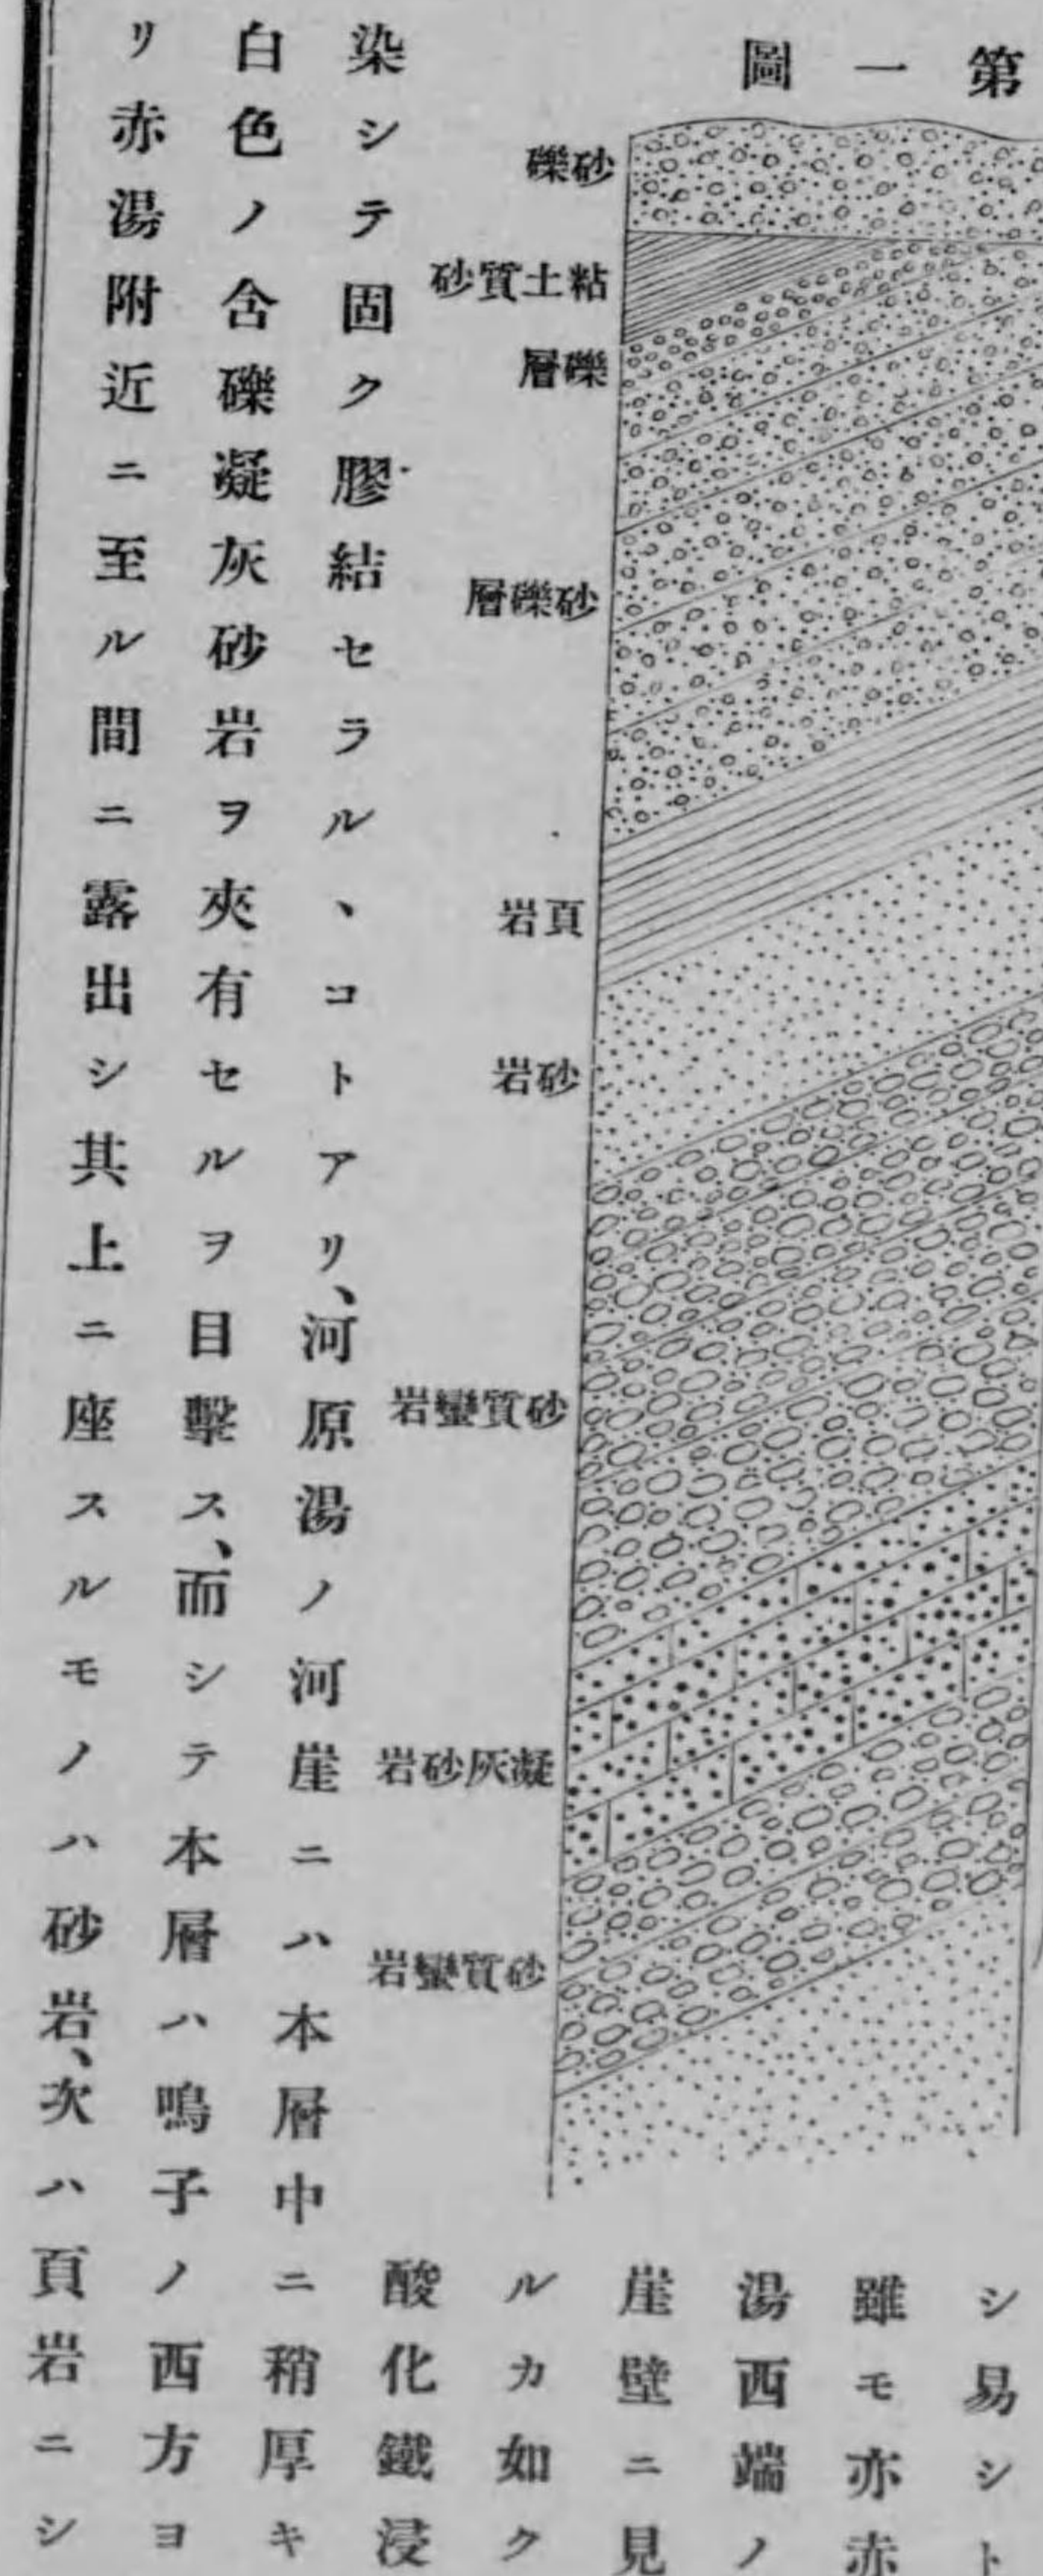 第一圖
礫砂
砂質土粘
層礫
層礫砂
岩頁
岩砂
岩蠻質砂
岩砂灰凝
岩蠻質砂
シ易シト
雖モ亦赤
湯西端ノ
崖壁ニ見
ルカ如ク
酸化鐵浸
染シテ固ク膠結セラルヽコトアリ、河原湯ノ河崖ニハ本層中ニ稍厚キ
白色ノ含礫凝灰砂岩ヲ夾有セルヲ目擊ス、而シテ本層ハ鳴子ノ西方ヨ
リ赤湯附近ニ至ル間ニ露出シ其上ニ座スルモノハ砂岩、次ハ頁岩ニシ